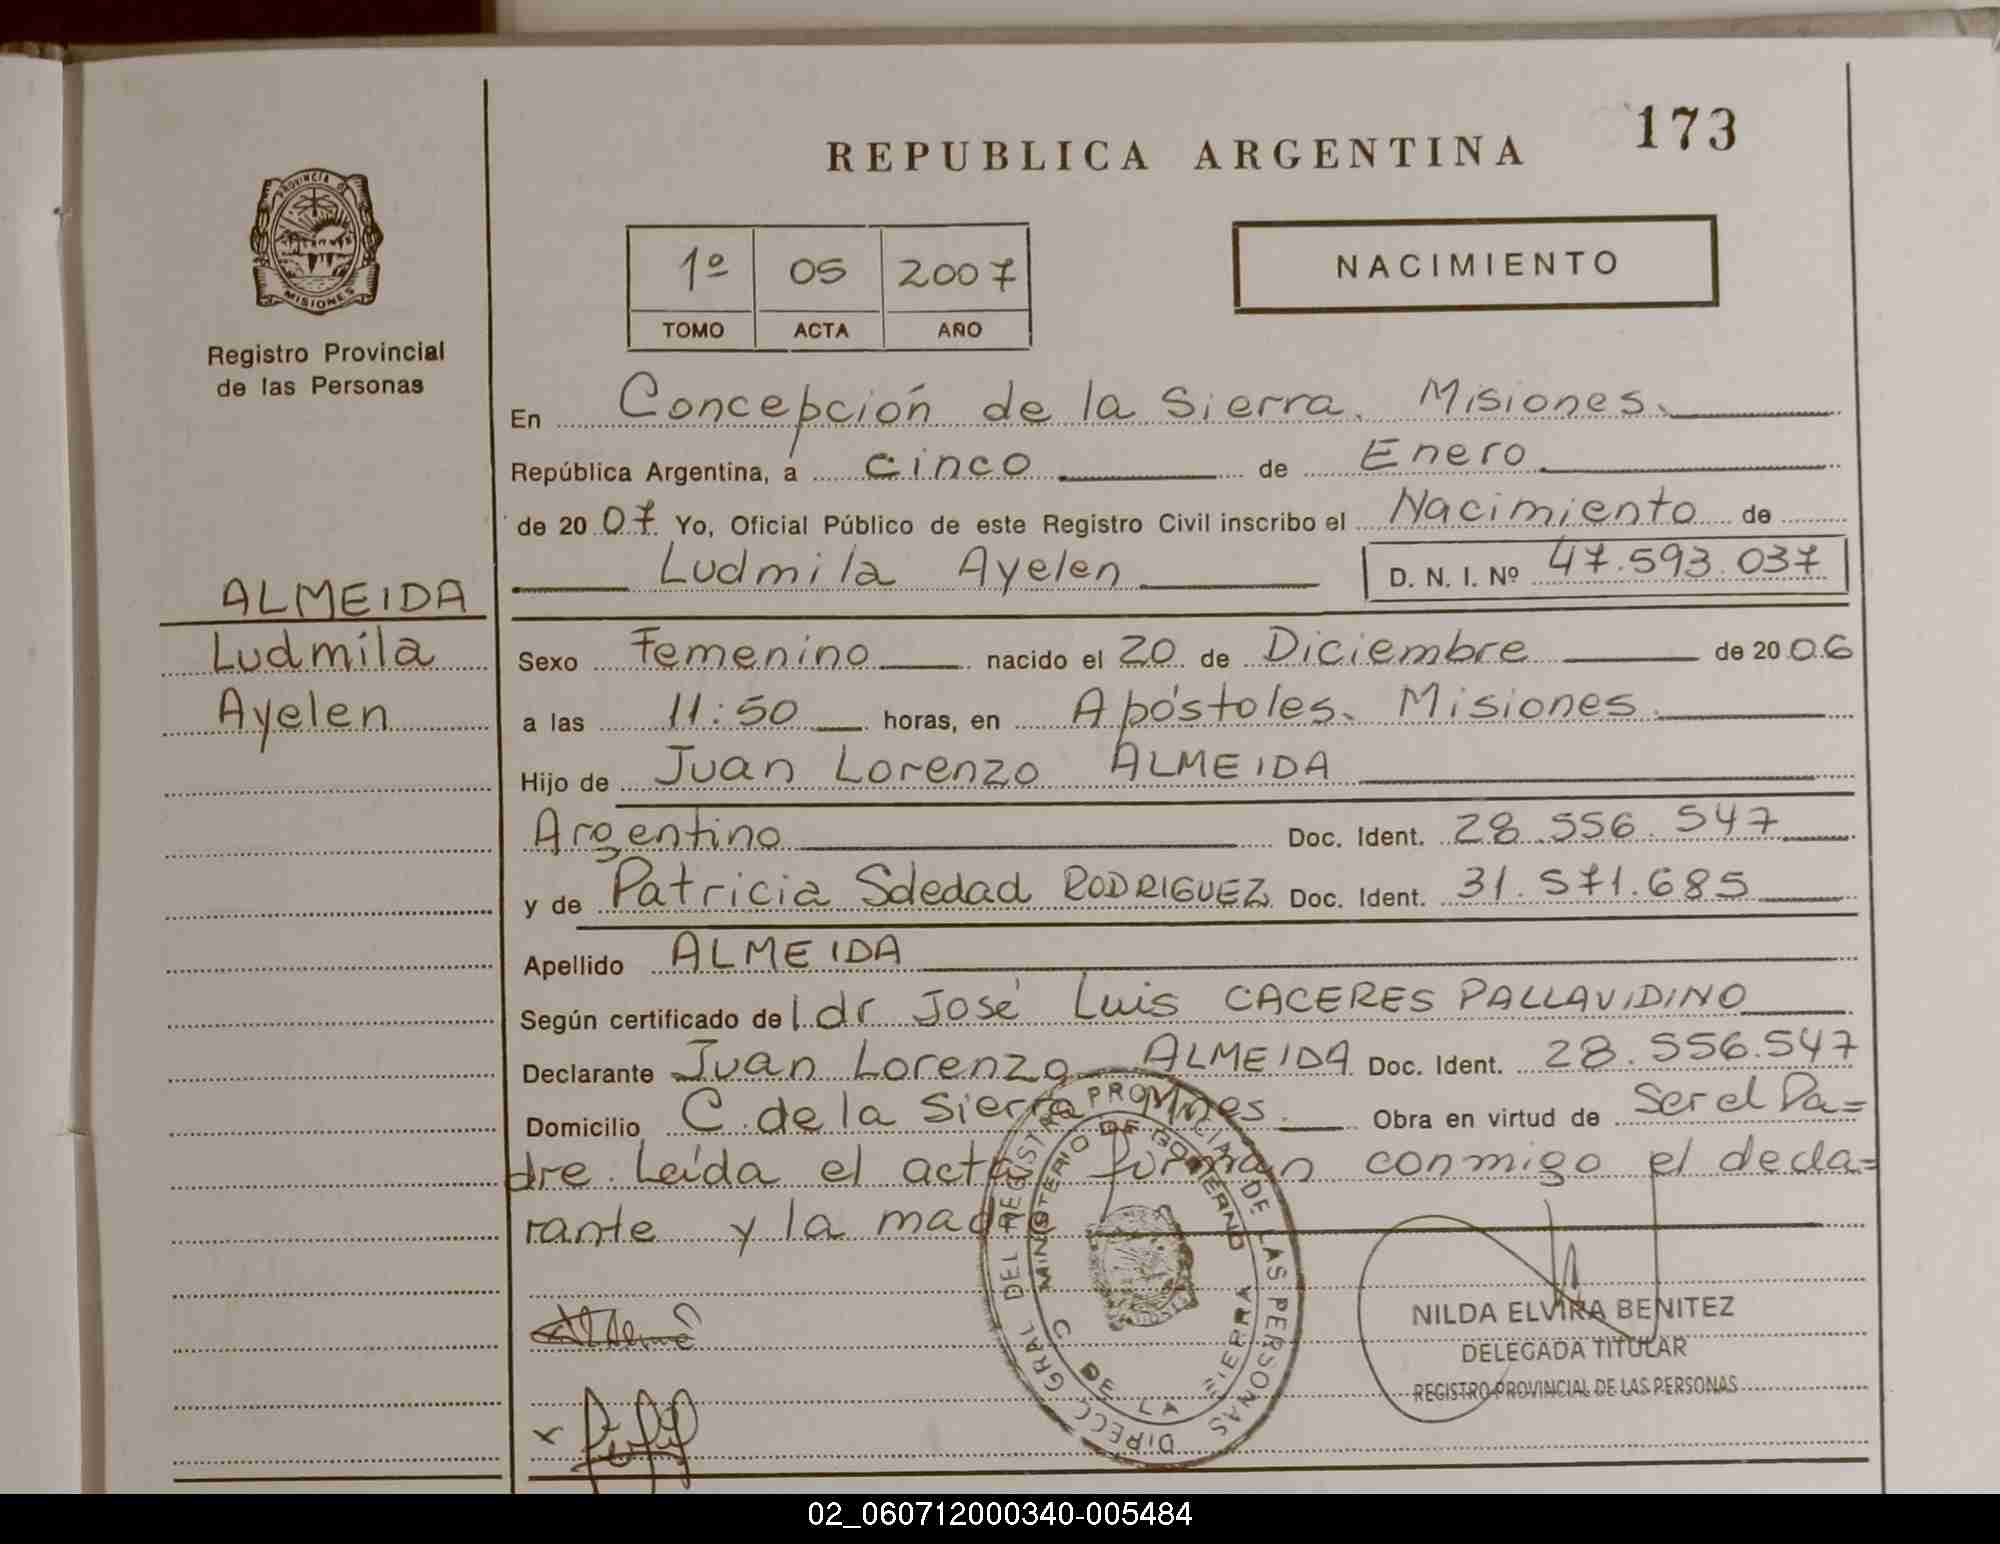 173
REPUBLICA ARGENTINA
PROVINCIA DE
MISIONES
Registro Provincial
de las Personas
1º 05 2007
TOMO ACTA AÑO
NACIMIENTO
En Concepción de la Sierra. Misiones.
República Argentina, a cinco de Enero
de 2007. Yo, Oficial Público de este Registro Civil inscribo el Nacimiento de
Ludmila Ayelen D. N. I. Nº 47.593.037
ALMEIDA
Ludmila
Ayelen
Sexo Femenino nacido el 20 de Diciembre de 2006
a las 11:50 horas, en Apóstoles. Misiones.
Hijo de Juan Lorenzo ALMEIDA
Argentino Doc. Ident. 28.556.547
y de Patricia Soledad RODRIGUEZ Doc. Ident. 31.571.685
Apellido ALMEIDA
Según certificado del dr José Luis CACERES PALLAVIDINO
Declarante Juan Lorenzo ALMEIDA Doc. Ident. 28.556.547
Domicilio C. de la Sierra Mnes. Obra en virtud de Ser el Pa=
dre. Leída el acta firman conmigo el decla=
rante y la madre
DIRECC. GRAL. DEL REGISTRO PROVINCIAL DE LAS PERSONAS
MINISTERIO DE GOBIERNO
C. DE LA SIERRA
NILDA ELVIRA BENITEZ
DELEGADA TITULAR
REGISTRO PROVINCIAL DE LAS PERSONAS
x
02_060712000340-005484